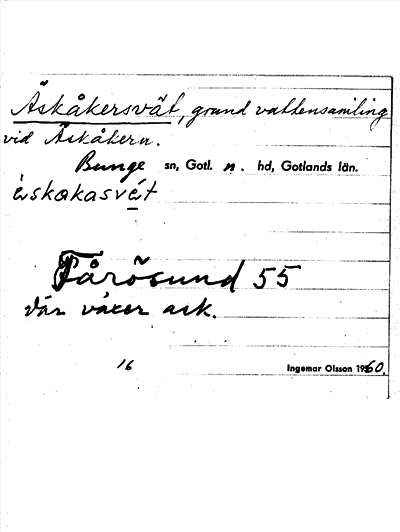 Äskåkersvät, grund vattensamling
vid Äskåkern.
Bunge sn, Gotl. n. hd, Gotlands län.
èskakasvét
Fårösund 55
där växer ask.
16
Ingemar Olsson 1960.